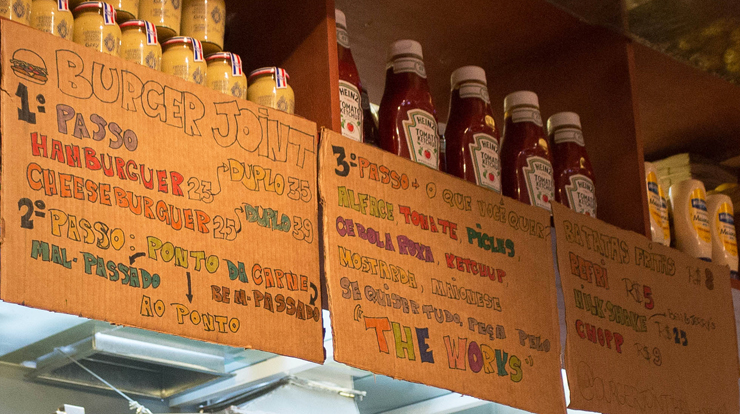 BURGER JOINT
1º PASSO
HAMBURGUER 23 → DUPLO 35
CHEESEBURGUER 25 → DUPLO 39
2º PASSO: PONTO DA CARNE
MAL-PASSADO
BEM-PASSADO
AO PONTO
3º PASSO → O QUE VOCÊ QUER
ALFACE TOMATE, PICLES,
CEBOLA ROXA, KETCHUP
MOSTARDA, MAIONESE
SE QUISER TUDO, PEÇA PELO
"THE WORKS"
BATATAS FRITAS R$ 8
REFRI R$5
MILK-SHAKE R$25
CHOPP R$9
HEINZ
TOMATO
KETCHUP
HEINZ
TOMATO
KETCHUP
HEINZ
TOMATO
KETCHUP
HEINZ
HEINZ